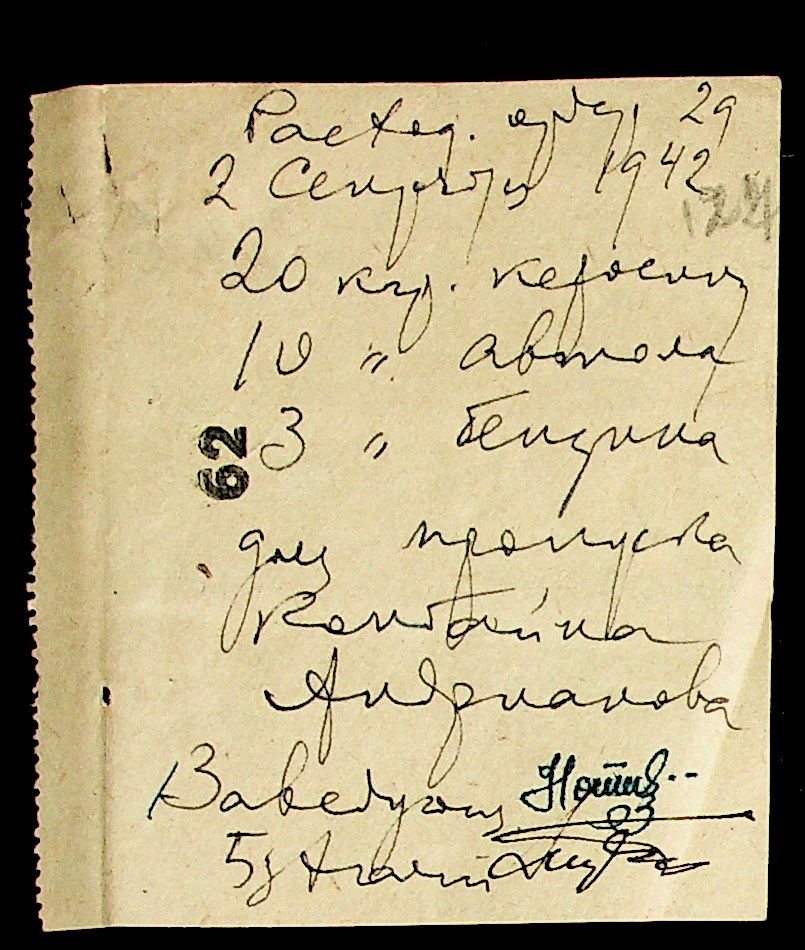 Расход. орд. 29
2 Сентября 1942
124
20 кгр. керосину
10 " автола
3 " бензина
62
для пропуска
Комбайна
Андрианова
Заведующ
Бухгалт